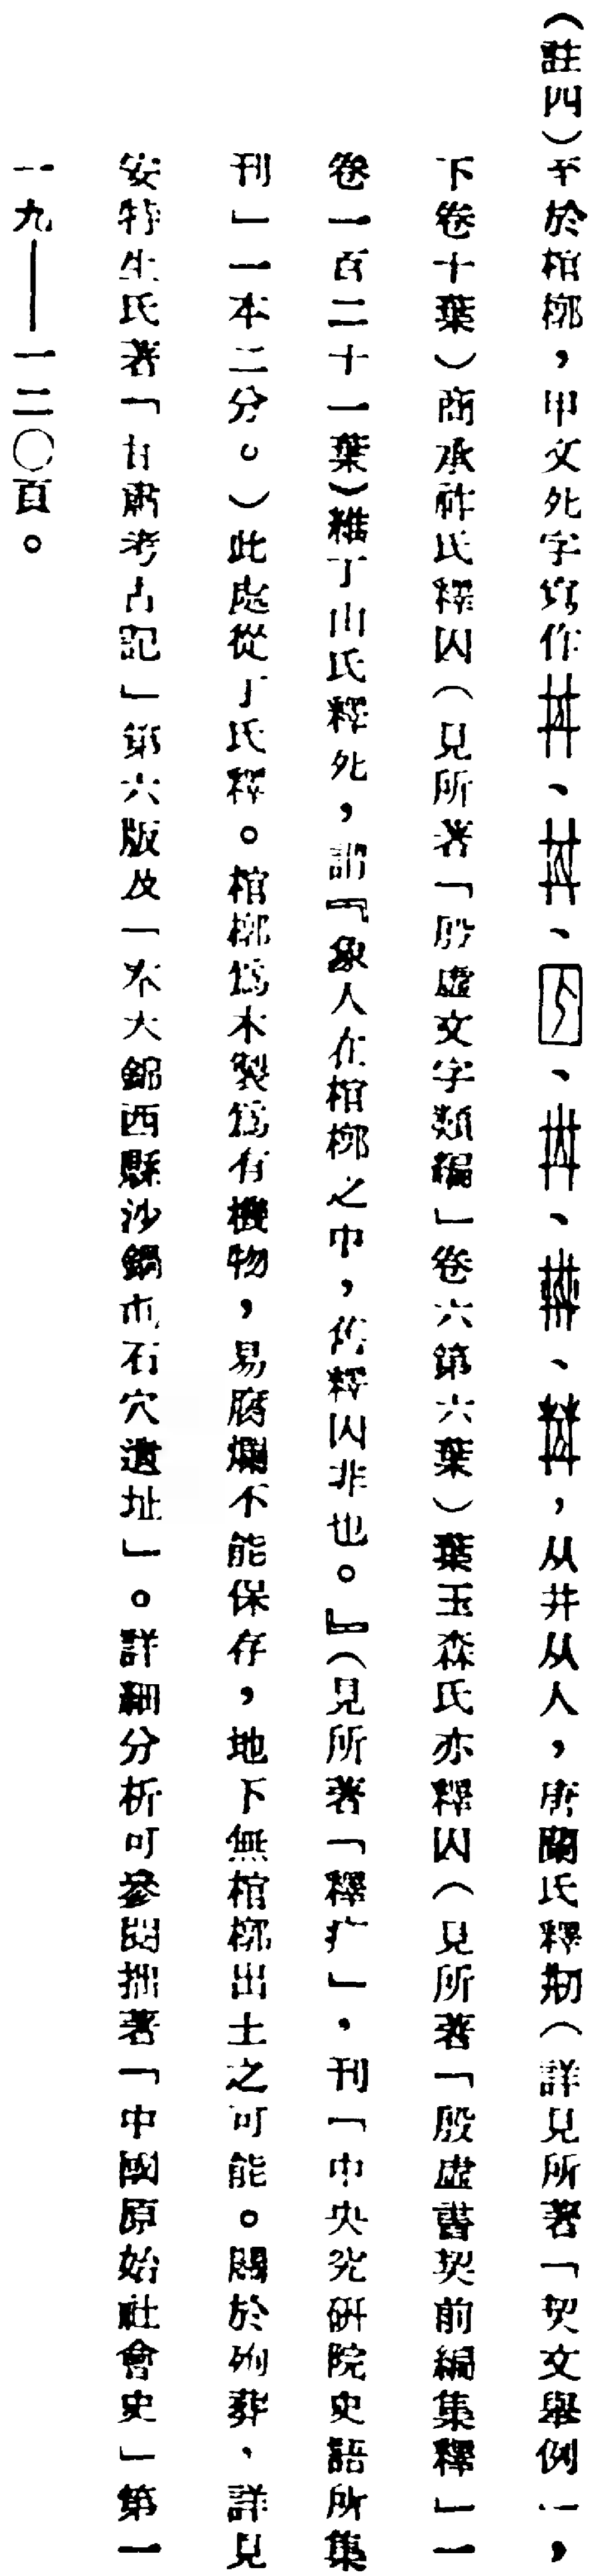 （註四）至於棺槨，甲文死字寫作、、、、、，从井从人，唐蘭氏釋㓝（詳見所著「契文舉例」，
下卷十葉）商承祚氏釋囚（見所著「殷虛文字類編」卷六第六葉）葉玉森氏亦釋囚（見所著「殷虛書契前編集釋」一
卷一百二十一葉）惟丁山氏釋死，謂『象人在棺槨之中，舊釋囚非也。』（見所著「釋疒」，刊「中央究研院史語所集
刊」一本二分。）此處從丁氏釋。棺槨爲木製爲有機物，易腐爛不能保存，地下無棺槨出土之可能。關於殉葬，詳見
安特生氏著「甘肅考古記」第六版及「奉天錦西縣沙鍋屯石穴遺址」。詳細分析可參閱拙著「中國原始社會史」第一
一九——一二〇頁。